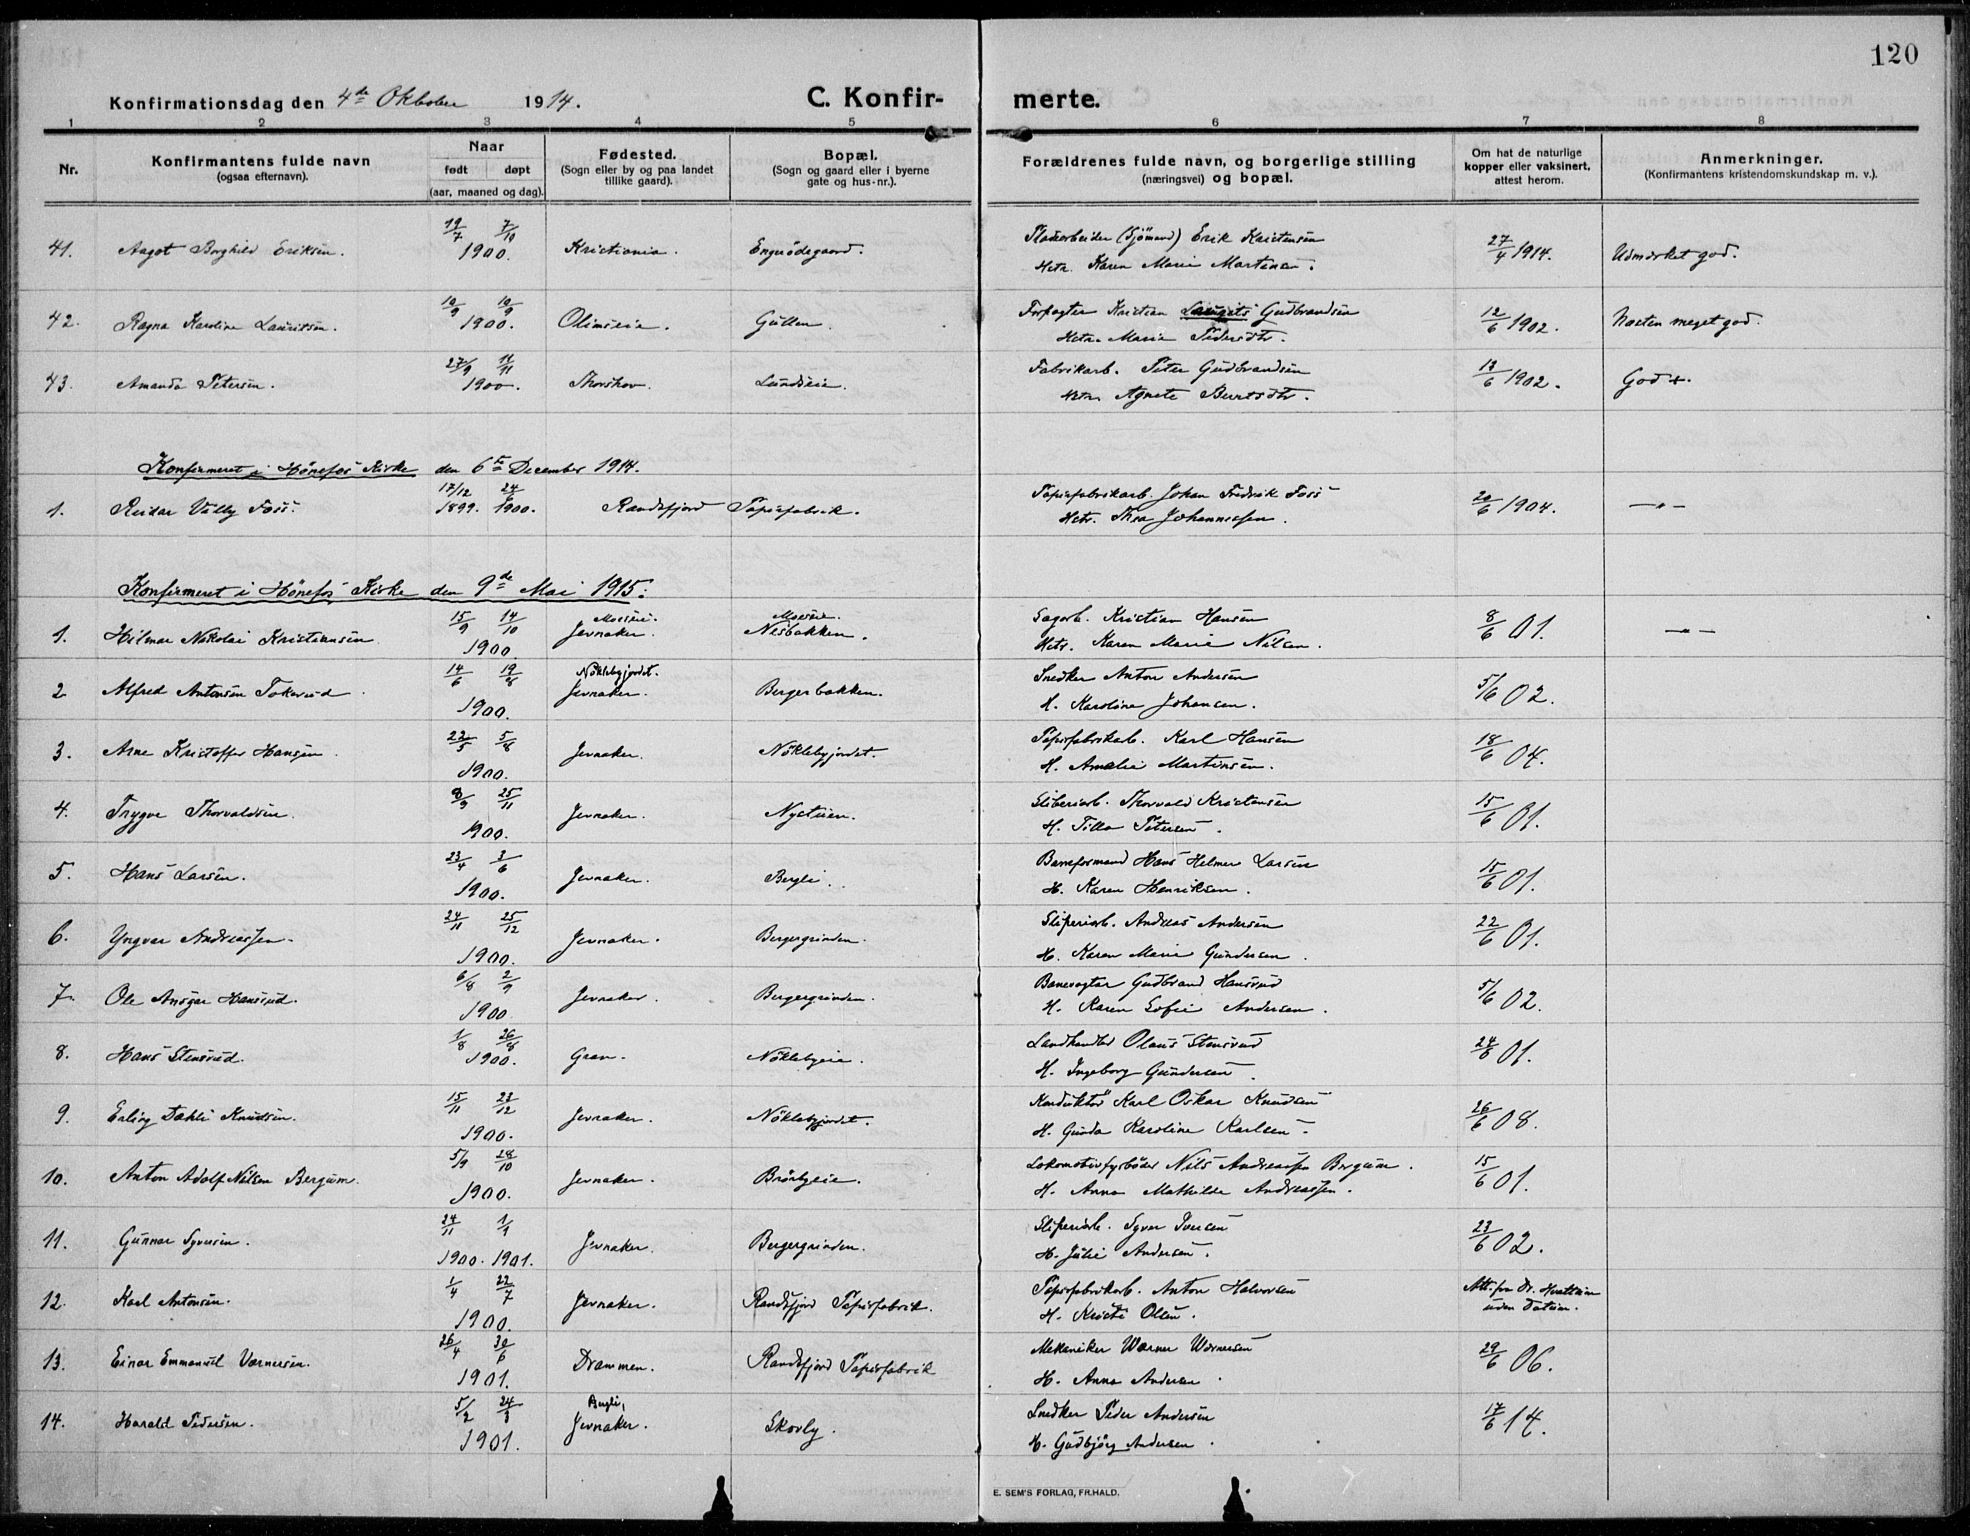 120
Konfirmationsdag den 4de Oktober 1914. C. Konfir- merte.
1 2 3 4 5 6 7 8
Nr. Konfirmantens fulde navn (ogsaa efternavn). Naar født døpt (aar, maaned og dag). Fødested. (Sogn eller by og paa landet tillike gaard). Bopæl. (Sogn og gaard eller i byerne gate og hus-nr.). Forældrenes fulde navn, og borgerlige stilling (næringsvei) og bopæl. Om hat de naturlige kopper eller vaksinert, attest herom. Anmerkninger. (Konfirmantens kristendomskundskap m. v.).
41. Aagot Borghild Eriksen. 19/7 7/10 1900. Kristiania. Engnødegaard. Erik Kristensen 27/4 1914. Udmærket god.
Hstr. Karen Marie Martinsen.
42. Ragna Karoline Lauritsen. 10/9 10/9 1900. Olimseie. Gullen. Forpagter Kristian Laurits Gudbrandsen 12/6 1902. Næsten meget god.
Hstr. Marie Pedersdtr.
43. Amanda Petersen. 27/9 11/11 1900. Thorshov. Lundseie. Fabrikarb. Peter Gudbrandsen 13/6 1902. God +.
Hstr. Agnete Berntsdtr.
Konfirmeret i Hønefos Kirke den 6te December 1914.
1. Reidar Villy Foss. 17/12 1899. 24/6 1900. Randsfjord Papirfabrik. Papirfabrikarb. Johan Fredrik Foss 20/6 1904. —"—
Hstr. Thea Johannessen.
Konfirmeret i Hønefos Kirke den 9de Mai 1915:
1. Hilmar Nikolai Kristiansen. 15/9 14/10 1900. Moeseie. Jevnaker. Moeseie. Nesbakken. Sagarb. Kristian Hansen 8/6 01. —"—
Hstr. Karen Marie Nilsen.
2. Alfred Antonsen Tokerud. 14/6 19/8 1900. Nøklebyjordet. Jevnaker. Bergerbakken. Snedker Anton Andersen 5/6 02.
H. Karoline Johansen.
3. Arne Kristoffer Hansen. 22/5 5/8 1900. Jevnaker. Nøklebyjordet. Papirfabrikarb. Karl Hansen 18/6 04.
H. Amalie Martinsen.
4. Trygve Thorvaldsen. 8/9 25/11 1900. Jevnaker. Nystuen. Sliberiarb. Thorvald Kristensen 15/6 01.
H. Tilla Petersen.
5. Hans Larsen. 23/4 3/6 1900. Jevnaker. Bergli. Baneformand Hans Helmer Larsen 15/6 01.
H. Karen Henriksen.
6. Yngvar Andreassen. 24/11 25/12 1900. Jevnaker. Bergergrinden. Sliperiarb. Andreas Andersen 22/6 01.
H. Karen Marie Gundersen.
7. Ole Ansgar Hansrud. 6/8 2/9 1900. Jevnaker. Bergergrinden. Banevogter Gudbrand Hansrud 5/6 02.
H. Karen Sofie Andersen.
8. Hans Stensrud. 1/8 26/8 1900. Gran. Nøklebyeie. Landhandler Olaus Stensrud 24/6 01.
H. Ingeborg Gundersen.
9. Erling Dæhli Knudsen. 15/11 23/12 1900. Jevnaker. Nøklebyjordet. Konduktør Karl Oskar Knudsen 26/6 08.
H. Gunda Karoline Karlsen.
10. Anton Adolf Nilsen Bergum. 5/9 28/10 1900. Jevnaker. Brørbyeie. Lokomotivfyrbøder Nils Andreassen Bergum. 15/6 01.
H. Anna Mathilde Andreassen.
11. Gunnar Syversen. 24/11 1900. 1/1 1901. Jevnaker. Bergergrinden. Sliperiarb. Syver Iversen 23/6 02.
H. Julie Andersen.
12. Karl Antonsen. 1/4 22/7 1900. Jevnaker. Randsfjord Papirfabrik. Papirfabrikarb. Anton Halvorsen Att. fra Dr. uden Datum.
H. Kristi Olsen.
13. Einar Emmanuel Wærnersen. 26/4 30/6 1901. Drammen. Randsfjord Papirfabrik Mekaniker Wærner Wærnersen 29/6 06.
H. Anna Andersen.
14. Harald Pedersen. 5/2 24/3 1901. Bergli, Jevnaker. Skovly. Snedker Peder Andersen 17/6 14.
H. Gudbjørg Andersen.
E. SEM'S FORLAG, FR.HALD.